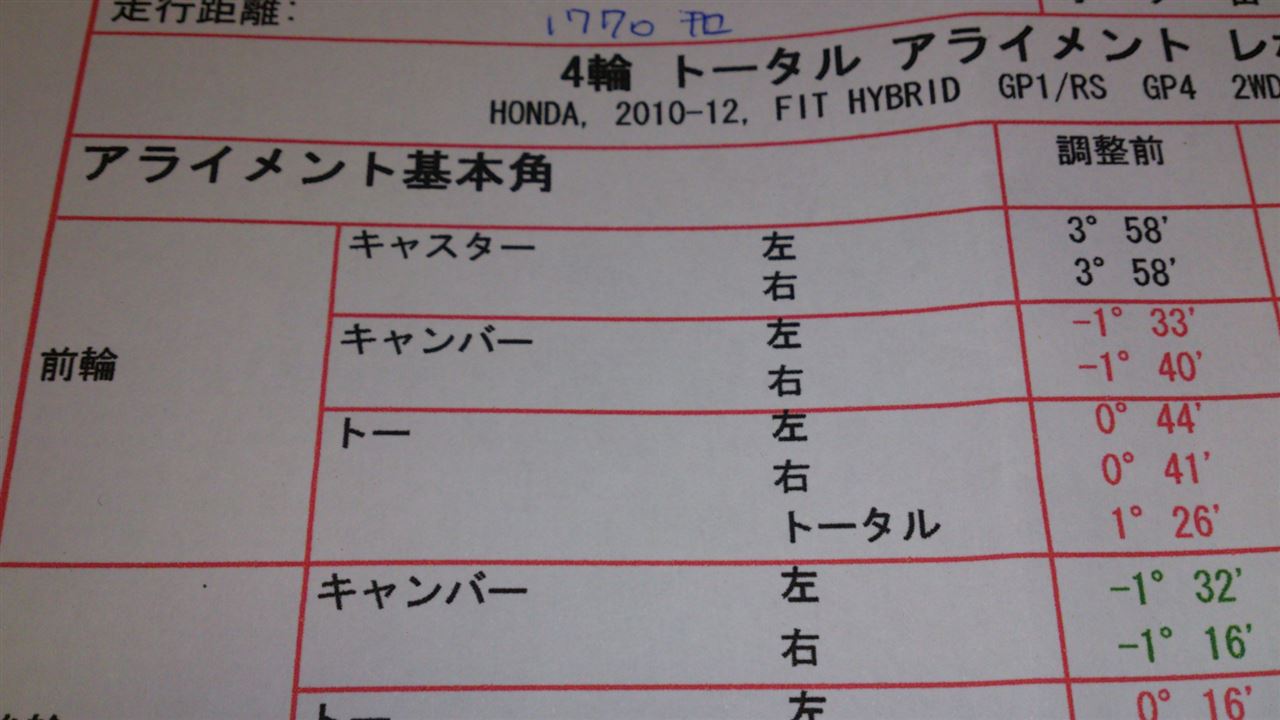 走行距離: 1770
4輪 トータル アライメント レ
HONDA, 2010-12, FIT HYBRID GP1/RS GP4 2WD
アライメント基本角 調整前
キャスター 左 3° 58'
右 3° 58'
キャンバー 左 -1° 33'
前輪
右 -1° 40'
トー 左 0° 44'
右 0° 41'
トータル 1° 26'
キャンバー 左 -1° 32'
右 -1° 16'
トー 左 0° 16'